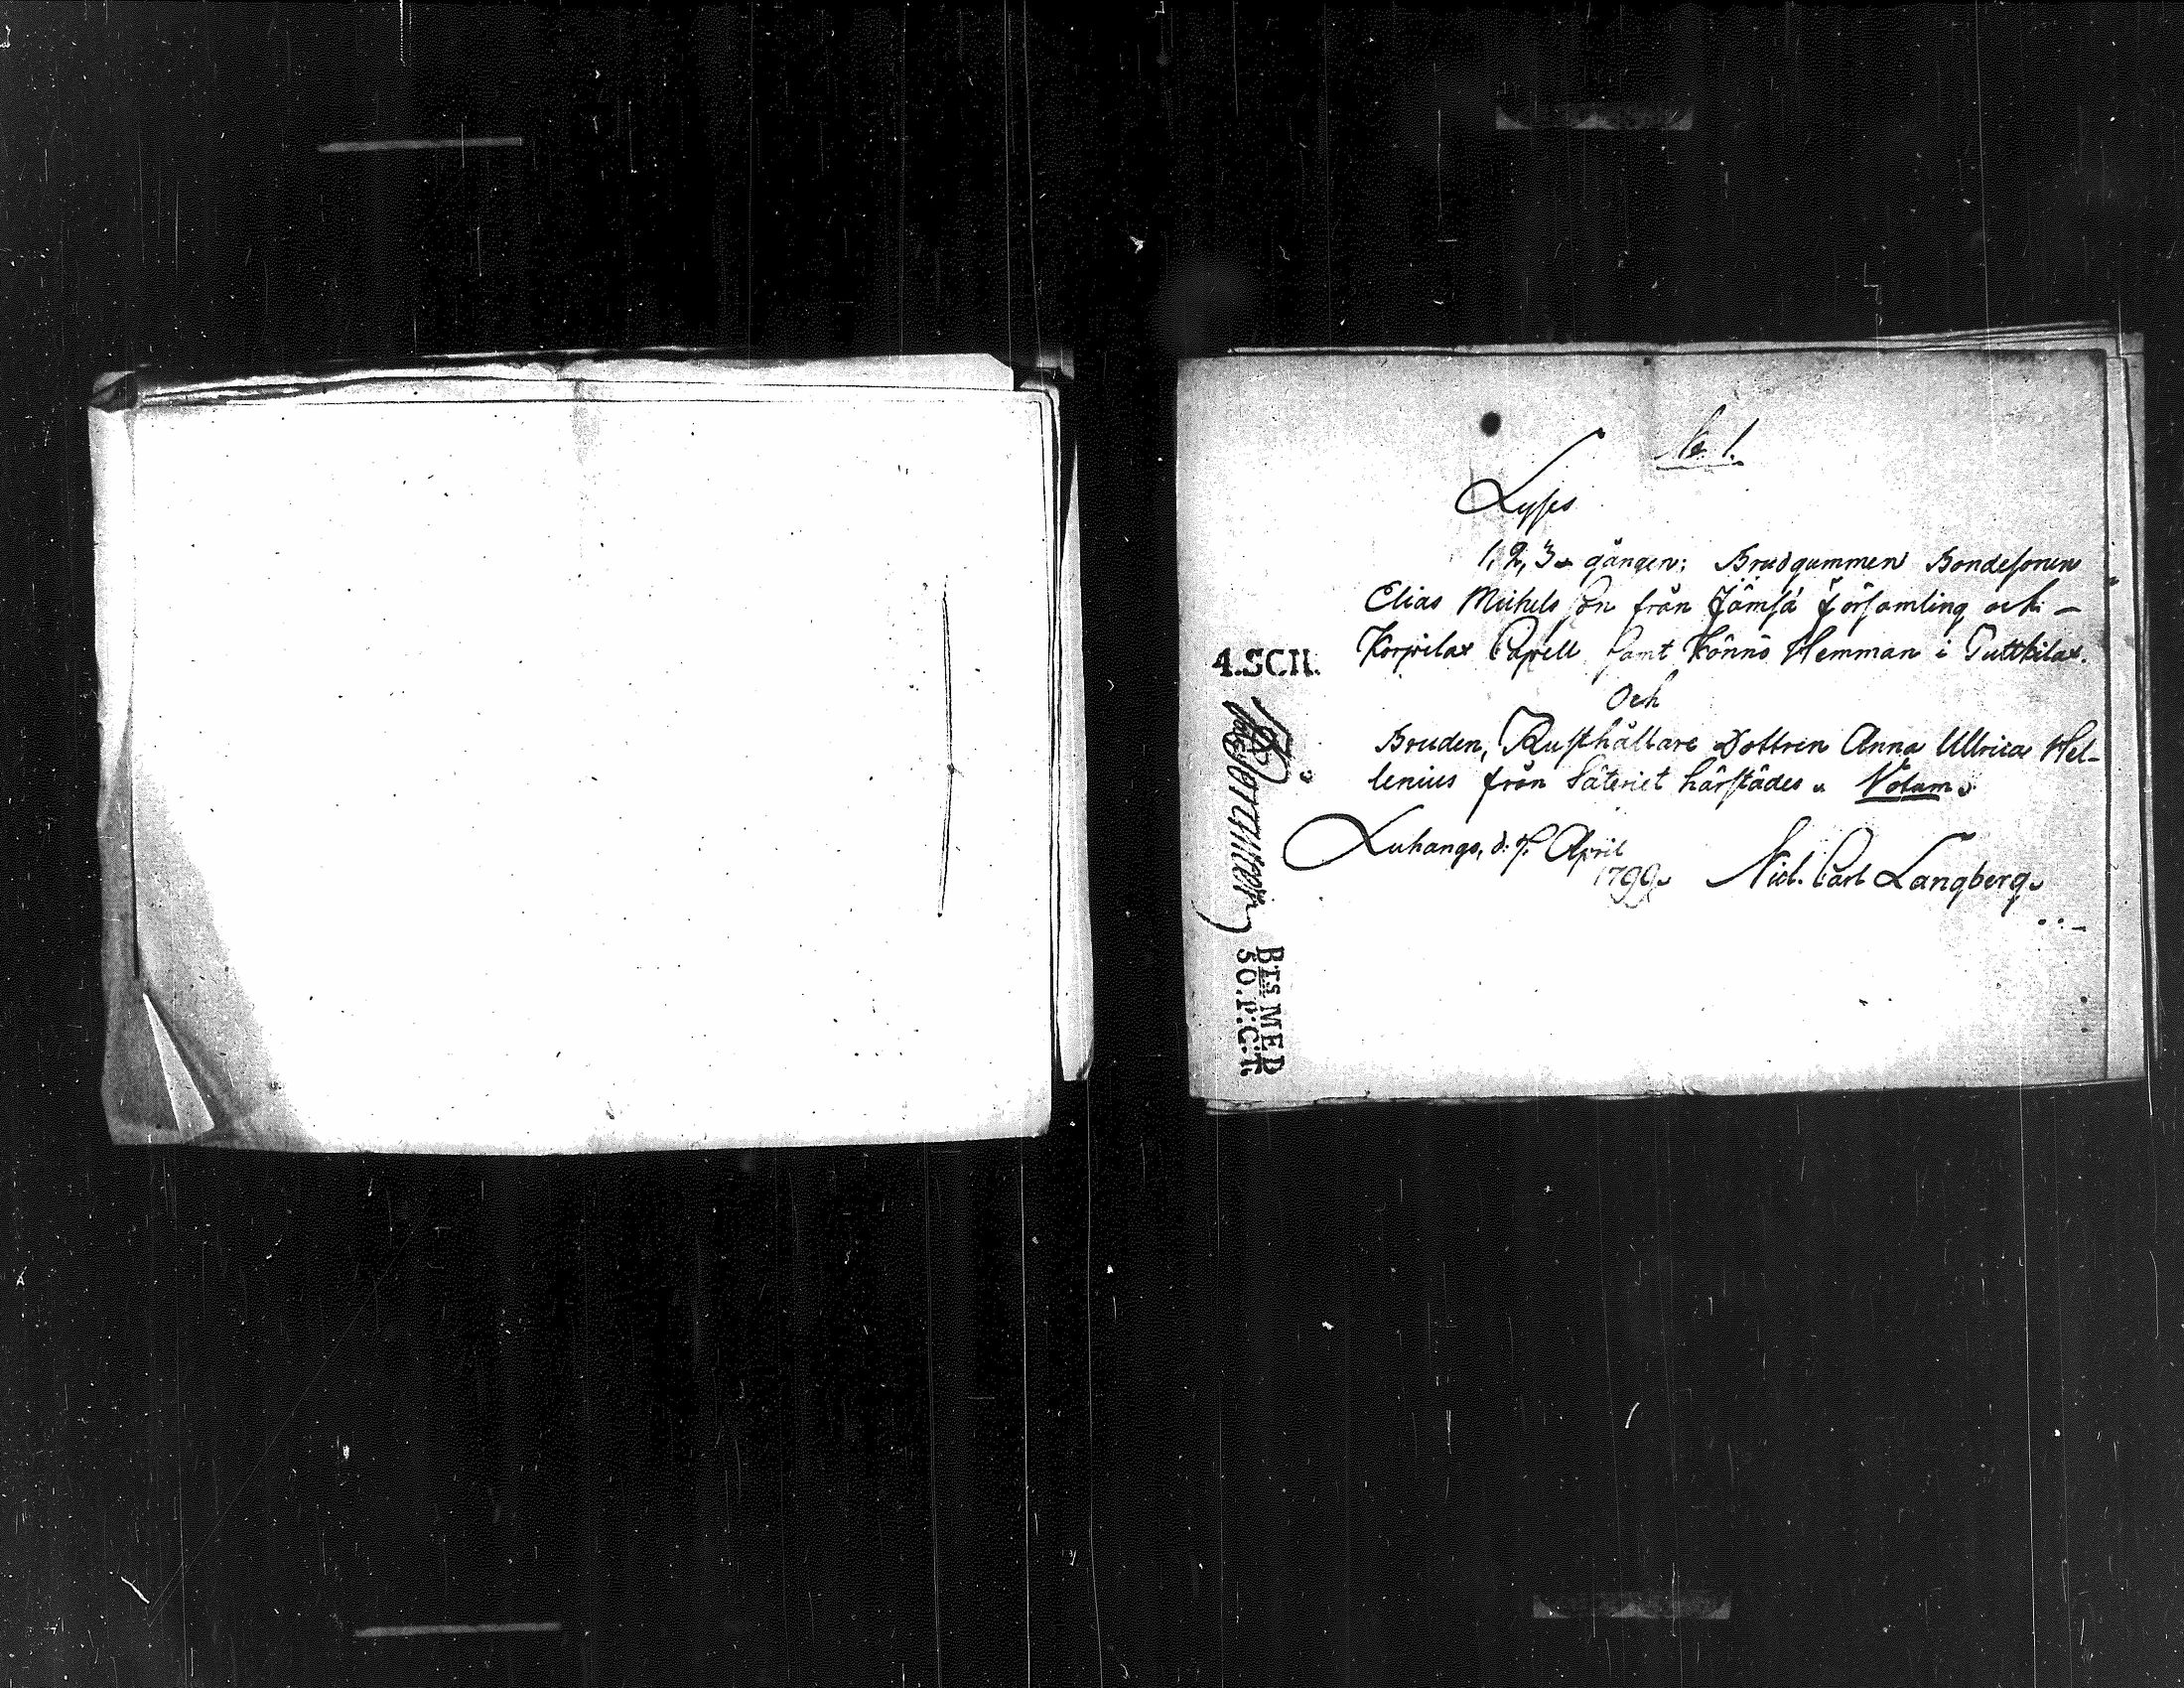 No 1.
Lyses
1, 2, 3 gången: Brudgummen Bondesonen
Elias Michels son från Jämsä Församling och
Korpilax Capell samt Könnö Hemman i Puttkilax.
Och
Bruden, Rusthållare Dottren Anna Ullrica Hel-
lenius från Säteriet härstädes. Notum.
Luhango, d. April
1799. Nicl. Carl Langberg.
4.SCH.
BTS MED
50.P:C:T.